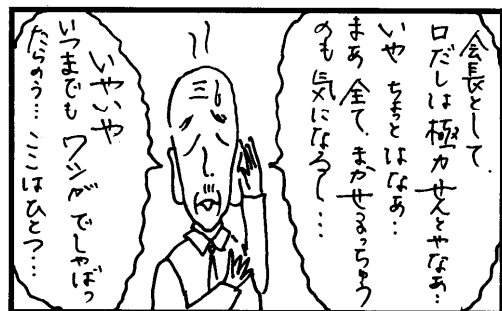 会長として、
口だしは極力せんとやなあ…
いや ちょっとはなあ…
まあ 全て、まかせるっちゅう
のも 気になるし…
いやいや
いつまでも ワシがでしゃばっ
たらのう… ここはひとつ…